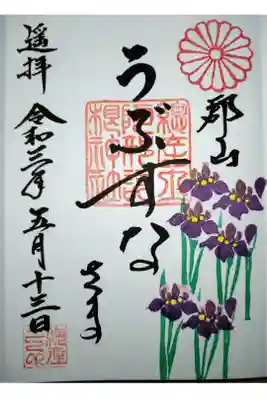 郡山
うぶすな
さま
遥拝
令和三年
五月十三日